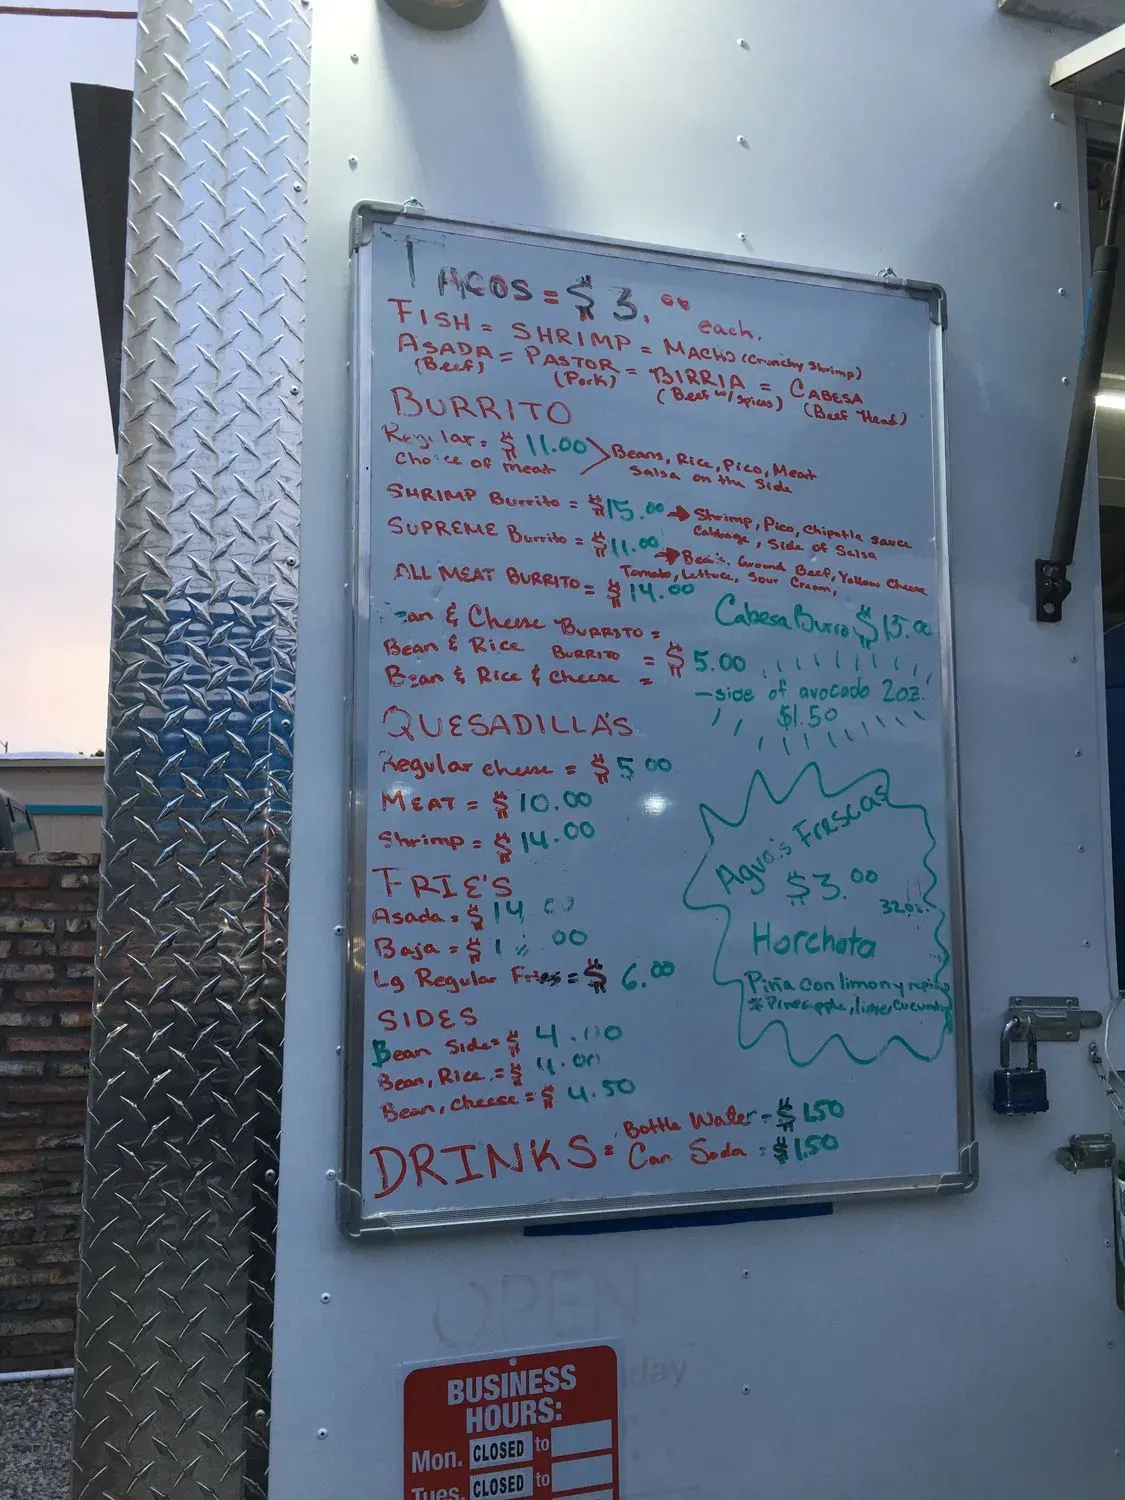 TACOS = $3.00 each.
FISH = SHRIMP = MACHO (Crunchy Shrimp)
ASADA = PASTOR = BIRRIA = CABESA
(Beef) (Pork) (Beef w/spices) (Beef Head)
BURRITO
Regular = $ 11.00 Beans, Rice, Pico, Meat
Choice of meat Salsa on the Side
SHRIMP Burrito = $15.00 → Shrimp, Pico, Chipotle sauce
Cabbage, Side of Salsa
SUPREME Burrito = $11.00 → Beans, Ground Beef, Yellow Cheese
Tomato, Lettuce, Sour Cream,
ALL MEAT BURRITO = $14.00
Cabesa Burro $15.00
Bean & Cheese BURRITO =
Bean & Rice BURRITO = $5.00
Bean & Rice & Cheese =
- side of avocado 2oz.
$1.50
QUESADILLA'S
Regular cheese = $5.00
MEAT = $10.00
Shrimp = $14.00
FRIE'S
Asada = $14.00
Baja = $1 .00
Lg Regular Fries = $ 6.00
Agua's Frescas
$3.00
32oz.
Horchata
Piña con limon y
*Pineapple, lime, cucumber
SIDES
Bean Side = $ 4.00
Bean, Rice = $ 4.00
Bean, cheese = $ 4.50
DRINKS = Bottle Water = $1.50
Can Soda = $1.50
OPEN
day
BUSINESS
HOURS:
Mon. CLOSED to
Tues. CLOSED to